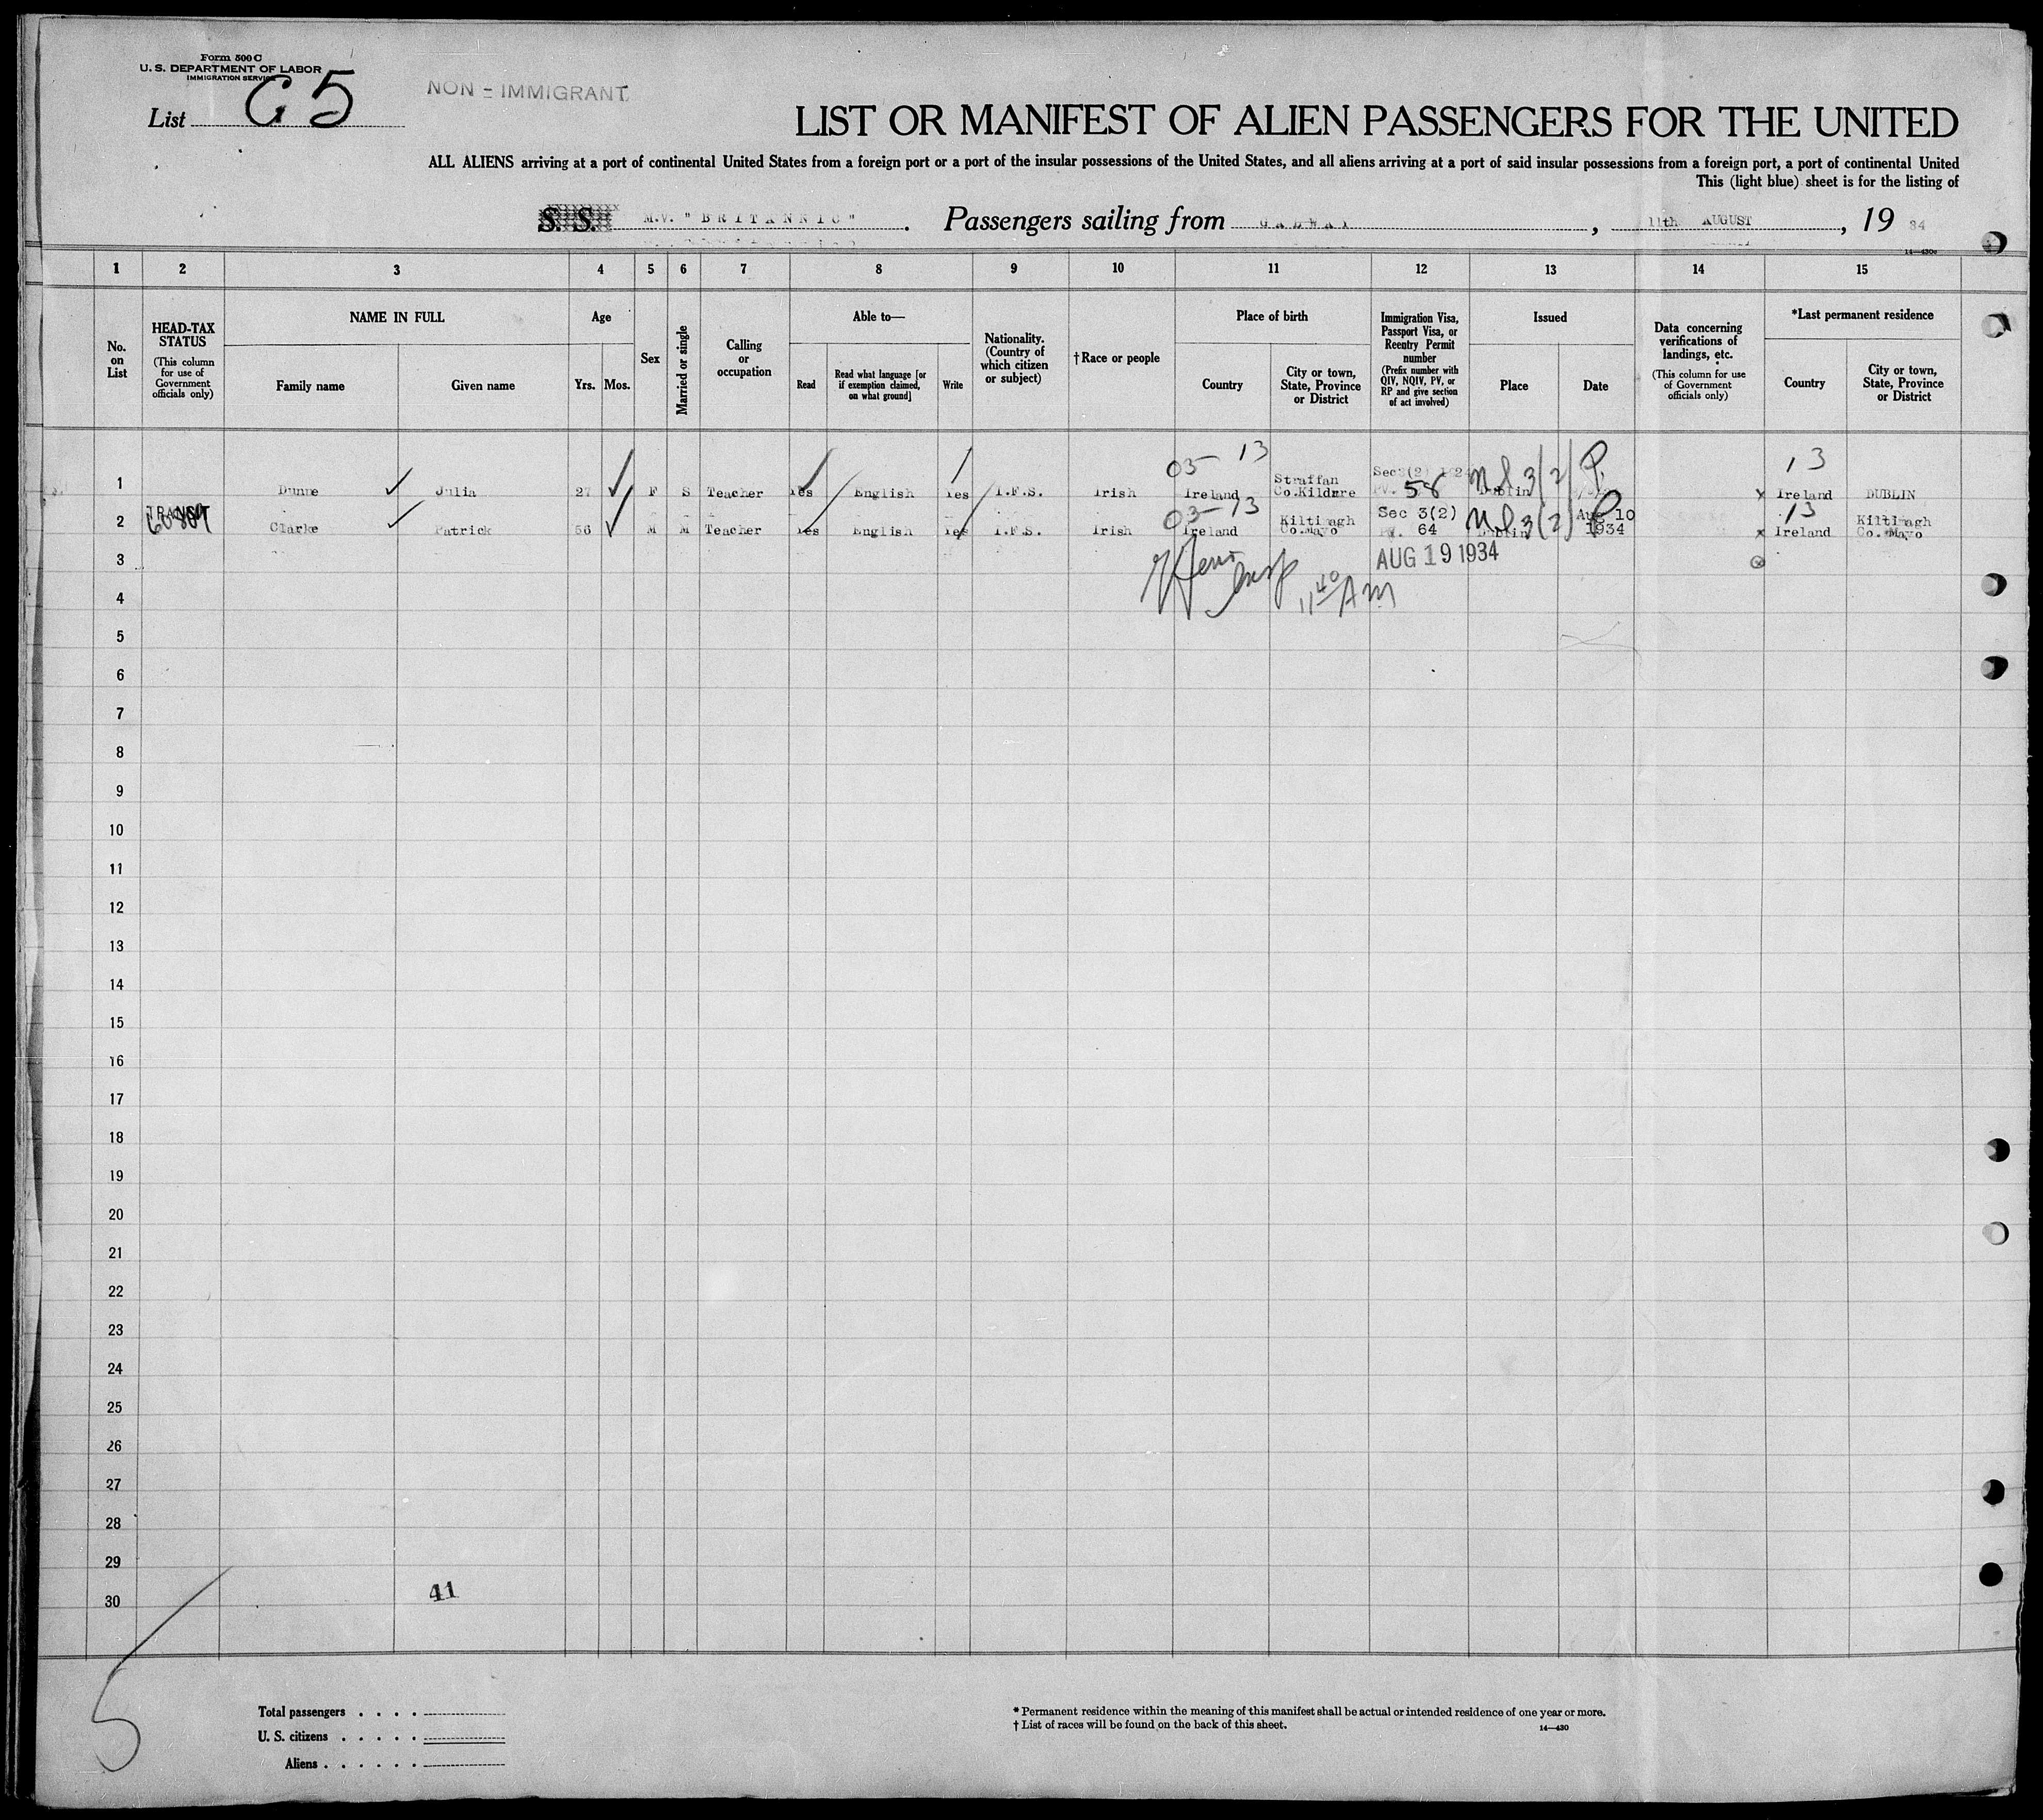 Form 500 C
U. S. DEPARTMENT OF LABOR
IMMIGRATION SERVICE
List G 5
NON - IMMIGRANT
LIST OR MANIFEST OF ALIEN PASSENGERS FOR THE UNITED
ALL ALIENS arriving at a port of continental United States from a foreign port or a port of the insular possessions of the United States, and all aliens arriving at a port of said insular possessions from a foreign port, a port of continental United
This (light blue) sheet is for the listing of
S. S. M.V. "BRITANNIC". Passengers sailing from GALWAY, 11th AUGUST, 19 34
14—430c
1 2 3 4 5 6 7 8 9 10 11 12 13 14 15
No. on List
HEAD-TAX STATUS
(This column for use of Government officials only)
NAME IN FULL
Family name
Given name
Age
Yrs. Mos.
Sex
Married or single
Calling or occupation
Able to—
Read
Read what language [or if exemption claimed, on what ground]
Write
Nationality. (Country of which citizen or subject)
†Race or people
Place of birth
Country
City or town, State, Province or District
Immigration Visa, Passport Visa, or Reentry Permit number
(Prefix number with QIV, NQIV, PV, or RP and give section of act involved)
Issued
Place
Date
Data concerning verifications of landings, etc.
(This column for use of Government officials only)
*Last permanent residence
Country
City or town, State, Province or District
03-13 13
1 Dunne Julia 27 F S Teacher Yes English Yes I.F.S. Irish Ireland Straffan Co.Kildare Sec 3(2) 1924 PV. 58 Dublin 3(2) x Ireland DUBLIN
TRANSIT
03-13 13
2 Clarke Patrick 56 M M Teacher Yes English Yes I.F.S. Irish Ireland Kiltimagh Co.Mayo Sec 3(2) PV. 64 Dublin 3(2) Aug 10 1934 x Ireland Kiltimagh Co. Mayo
3 AUG 19 1934
4 11 40 AM
5
6
7
8
9
10
11
12
13
14
15
16
17
18
19
20
21
22
23
24
25
26
27
28
29
30 41
5
Total passengers . . . .
U. S. citizens . . . . .
Aliens . . . . . .
* Permanent residence within the meaning of this manifest shall be actual or intended residence of one year or more.
† List of races will be found on the back of this sheet.
14—430